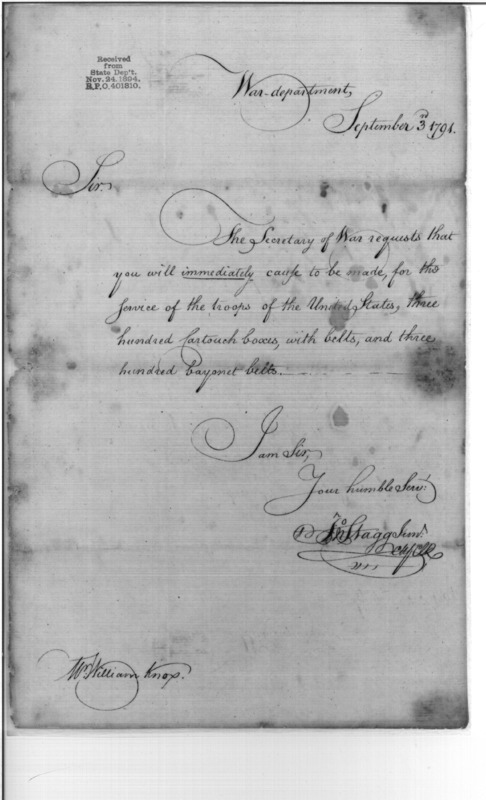 Received
from
State Dep't.
Nov. 24. 1894.
R.P.O. 401810.
War-department,
September 3d 1791.
Sir.
The Secretary of War requests that
you will immediately cause to be made, for the
service of the troops of the United States, three
hundred cartouch boxes, with belts, and three
hundred bayonet belts.
I am Sir,
Your humble Serv.t
Jno Stagg Junr.
Mr. William Knox.